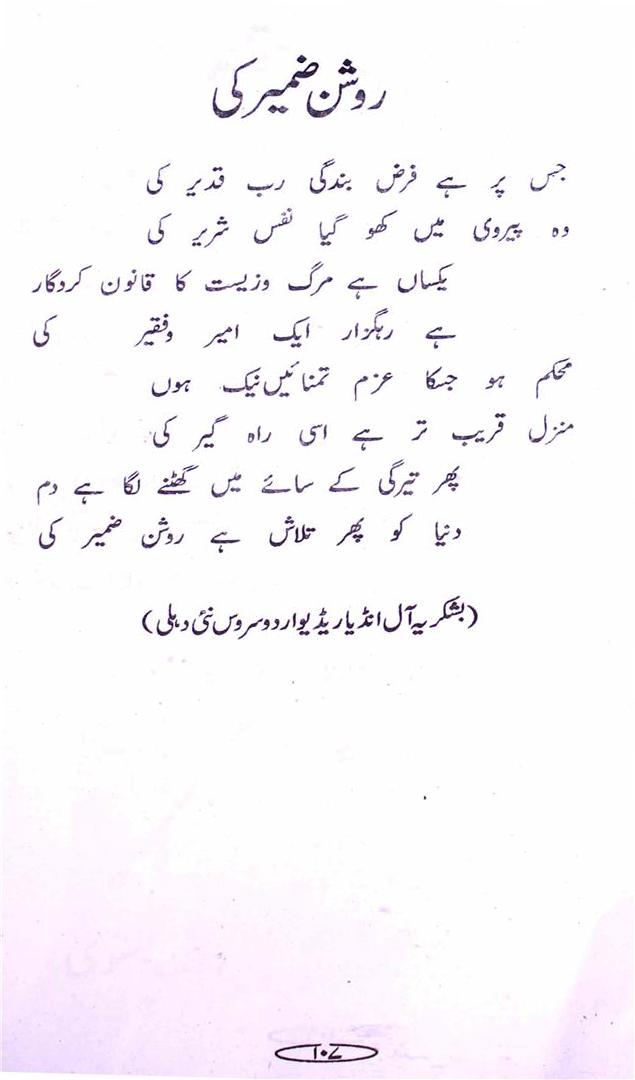 روشن ضمیر کی
جس پر ہے فرض بندگی رب قدیر کی
وہ پیروی میں کھو گیا نفس شریر کی
یکساں ہے مرگ وزیست کا قانون کردگار
ہے رہگزار ایک امیر وفقیر کی
محکم ہو جسکا عزم تمنائیں نیک ہوں
منزل قریب تر ہے اسی راہ گیر کی
پھر تیرگی کے سائے میں گھٹنے لگا ہے دم
دنیا کو پھر تلاش ہے روشن ضمیر کی
(بشکریہ آل انڈیا ریڈیو اردو سروس نئی دہلی)
۱۰۷